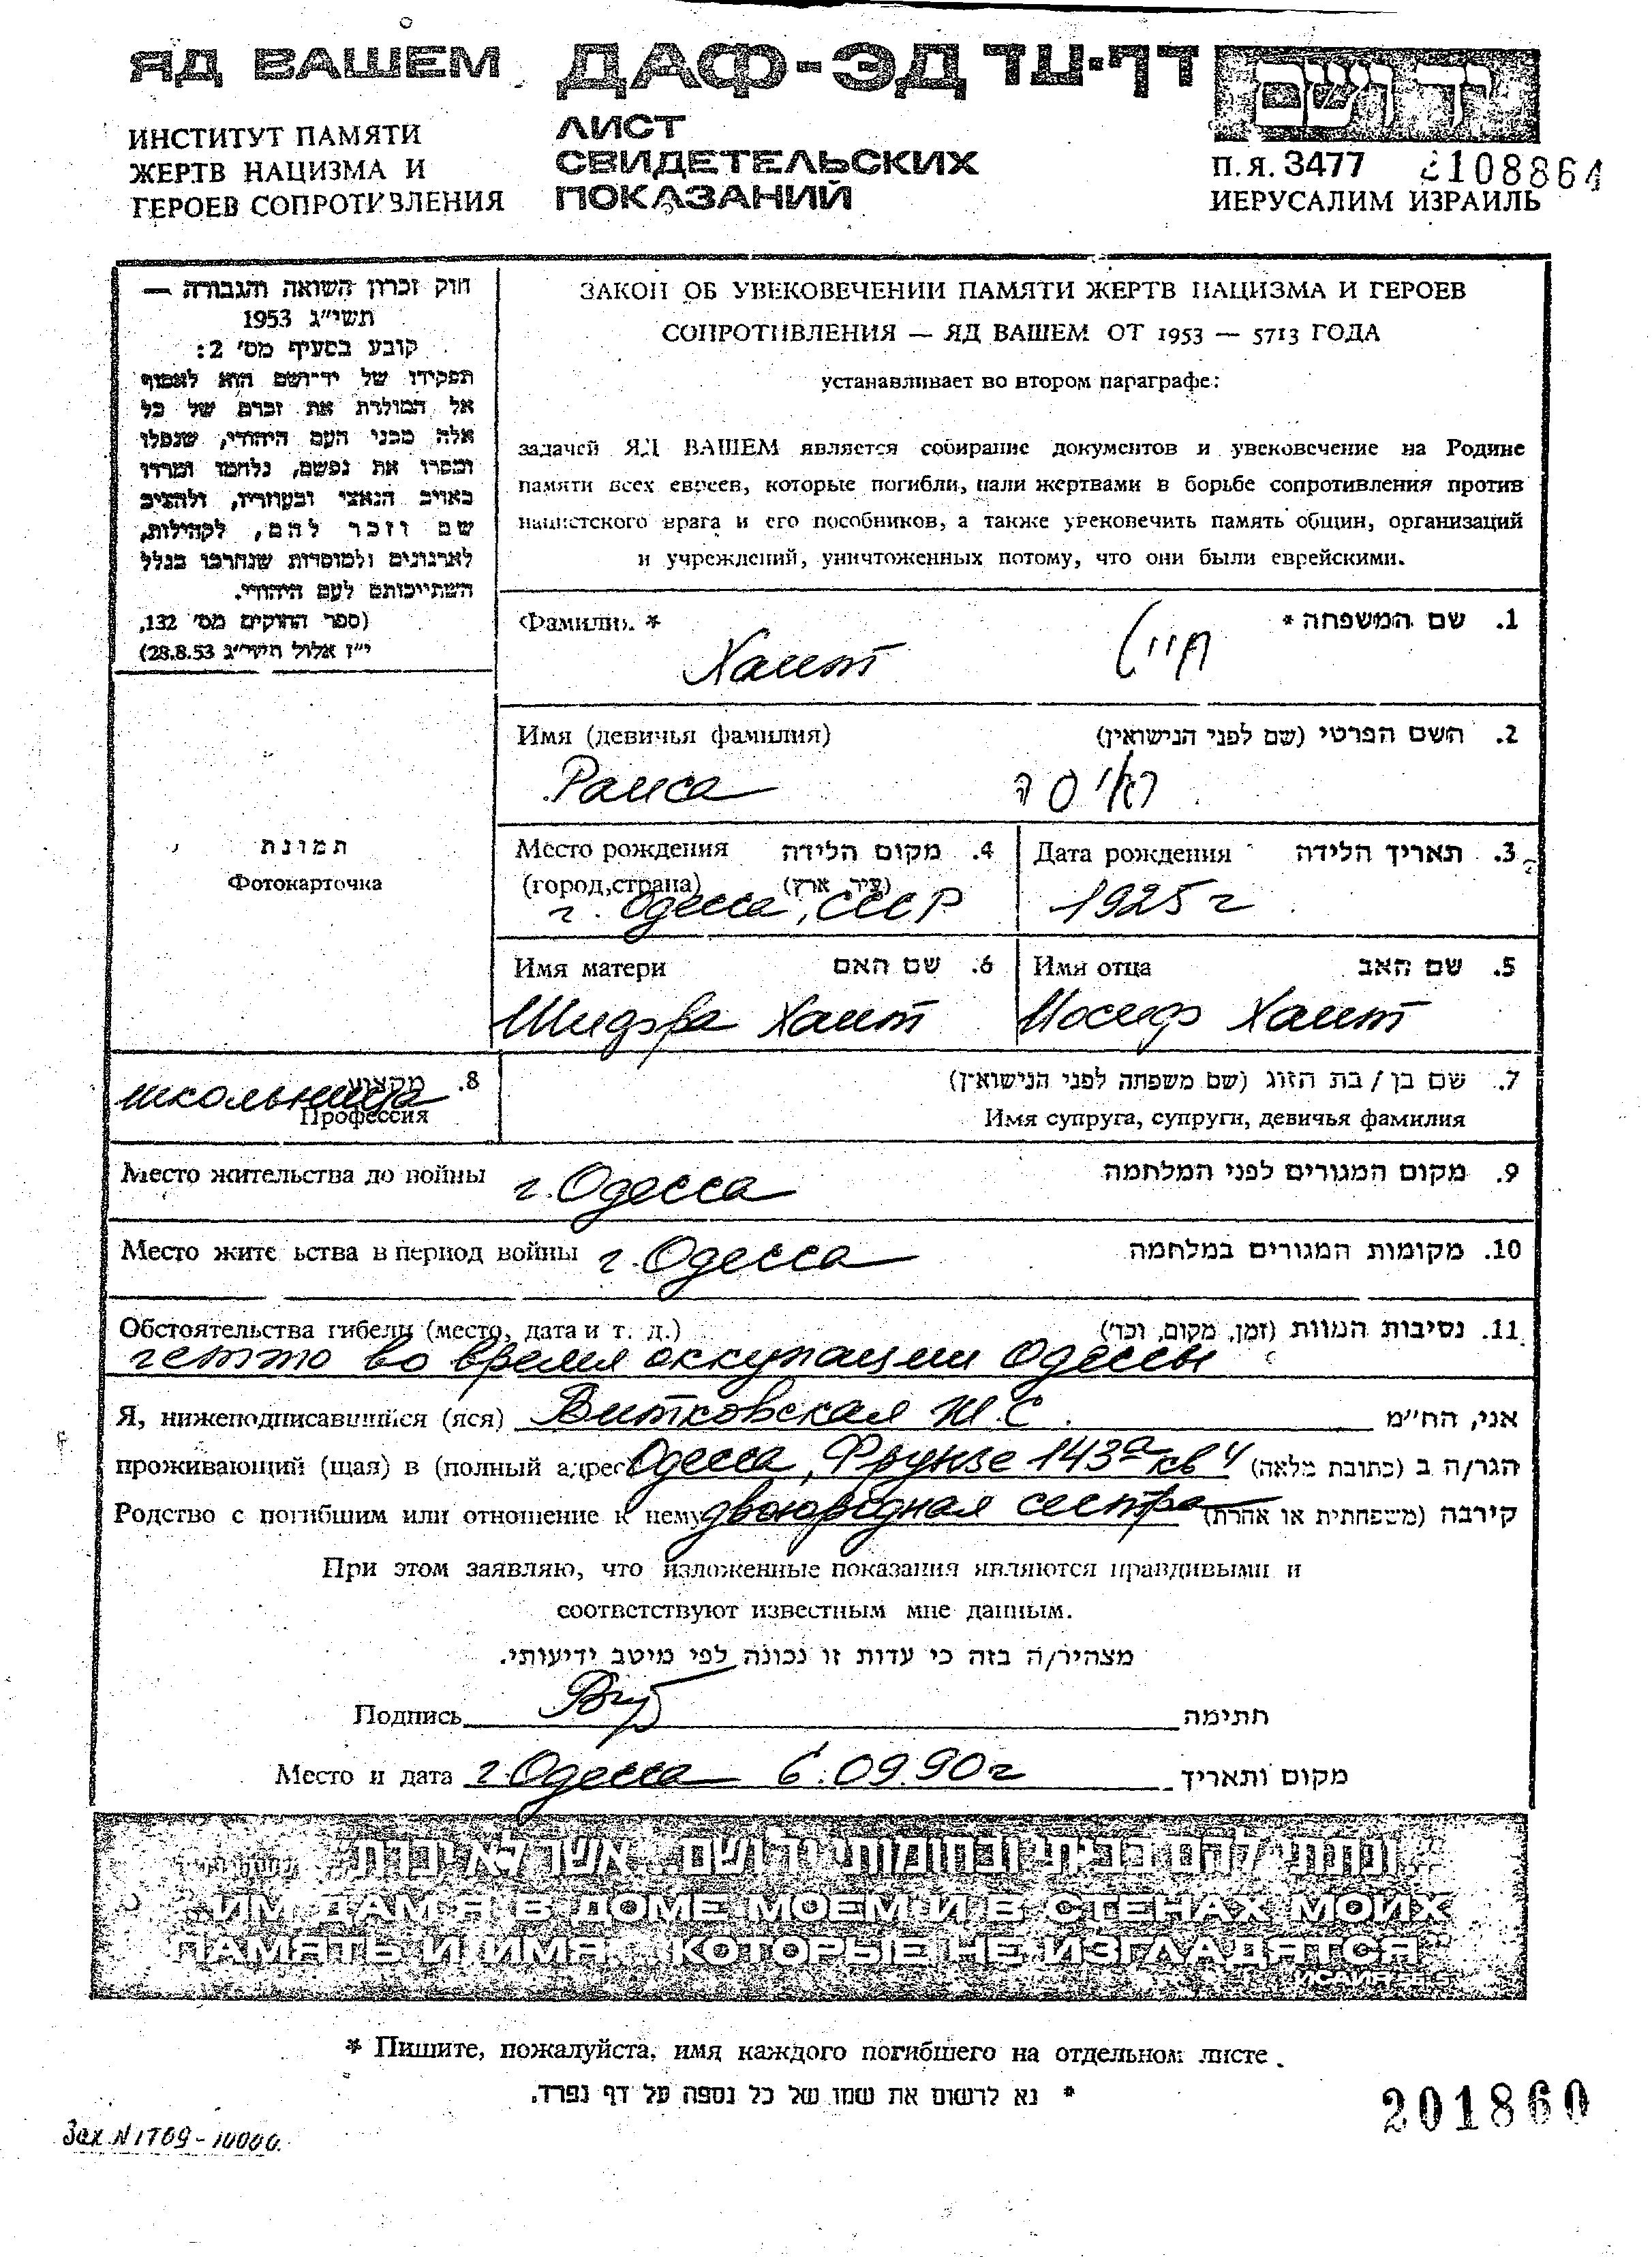 ЯД ВАШЕМ ДАФ-ЭД דף-עד יד ושם
ИНСТИТУТ ПАМЯТИ
ЖЕРТВ НАЦИЗМА И
ГЕРОЕВ СОПРОТИВЛЕНИЯ
ЛИСТ
СВИДЕТЕЛЬСКИХ
ПОКАЗАНИЙ
П.Я. 3477 2108864
ИЕРУСАЛИМ ИЗРАИЛЬ
חוק זכרון השואה והגבורה —
תשי״ג 1953
קובע בסעיף מס׳ 2:
תפקידו של יד־ושם הוא לאסוף
אל המולדת את זכרם של כל
אלה מבני העם היהודי, שנפלו
ומסרו את נפשם, נלחמו ומרדו
באויב הנאצי ובעוזריו, ולהציב
שם וזכר להם, לקהילות,
לארגונים ולמוסדות שנחרבו בגלל
השתייכותם לעם היהודי.
(ספר החוקים מס׳ 132,
י״ז אלול תשי״ג 28.8.53)
ЗАКОН ОБ УВЕКОВЕЧЕНИИ ПАМЯТИ ЖЕРТВ НАЦИЗМА И ГЕРОЕВ
СОПРОТИВЛЕНИЯ — ЯД ВАШЕМ ОТ 1953 — 5713 ГОДА
устанавливает во втором параграфе:
задачей ЯД ВАШЕМ является собирание документов и увековечение на Родине
памяти всех евреев, которые погибли, пали жертвами в борьбе сопротивления против
нацистского врага и его пособников, а также увековечить память общин, организаций
и учреждений, уничтоженных потому, что они были еврейскими.
Фамилия * 1. שם המשפחה *
Хаит חייט
Имя (девичья фамилия) 2. השם הפרטי (שם לפני הנישואין)
Раиса ראיסה
תמונת
Фотокарточка
Место рождения 4. מקום הלידה
(город,страна) (עיר, ארץ)
г. Одесса, СССР
Дата рождения 3. תאריך הלידה
1925 г
Имя матери 6. שם האם
Шидзва Хаит
Имя отца 5. שם האב
Иосиф Хаит
8. מקצוע
школьница
Профессия
7. שם בן / בת הזוג (שם משפחה לפני הנישואין)
Имя супруга, супруги, девичья фамилия
Место жительства до войны г. Одесса 9. מקום המגורים לפני המלחמה
Место жите ьства в период войны г. Одесса 10. מקומות המגורים במלחמה
Обстоятельства гибели (место, дата и т. д.) 11. נסיבות המוות (זמן, מקום, וכד׳)
гетто во время оккупации Одессы
Я, нижеподписавшийся (яся) Витковская Ж С. אני, הח״מ
проживающий (щая) в (полный адрес Одесса, Фрунзе 143а кв 4 הגר/ה ב (כתובת מלאה)
Родство с погибшим или отношение к нему двоюродная сестра קירבה (משפחתית או אחרת)
При этом заявляю, что изложенные показания являются правдивыми и
соответствуют известным мне данным.
מצהיר/ה בזה כי עדות זו נכונה לפי מיטב ידיעותי.
Подпись חתימה
Место и дата г. Одесса 6.09.90 г מקום ותאריך
ונתתי להם בביתי ובחומותי יד ושם... אשר לא יכרת
"ИМ ДАМ Я В ДОМЕ МОЕМ И В СТЕНАХ МОИХ
ПАМЯТЬ И ИМЯ... КОТОРЫЕ НЕ ИЗГЛАДЯТСЯ"
ИСАИЯ 56,5
* Пишите, пожалуйста, имя каждого погибшего на отдельном листе.
* נא לרשום את שמו של כל נספה על דף נפרד.
201860
Зак. N 1769 - 10000.